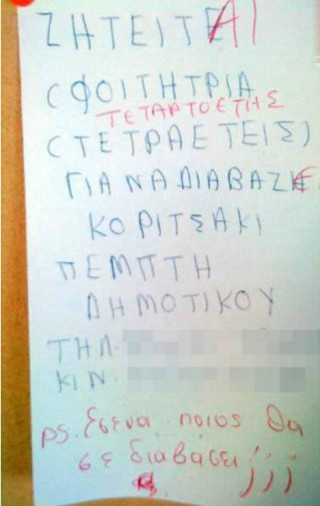 ΖΗΤΕΙΤΕΑΙ
(ΦΟΙΤΗΤΡΙΑ
ΤΕΤΑΡΤΟΕΤΗΣ
(ΤΕΤΡΑΕΤΕΙΣ)
ΓΙΑ ΝΑ ΔΙΑΒΑΖΕ
ΚΟΡΙΤΣΑΚΙ
ΠΕΜΠΤΗ
ΔΗΜΟΤΙΚΟΥ
ΤΗΛ.
ΚΙΝ.
ps. Εσενα ποιος θα
σε διαβάσει ;;;